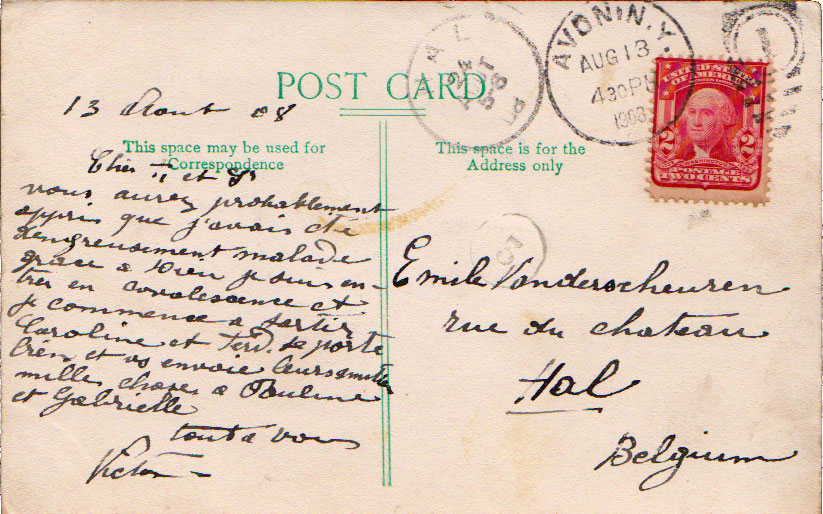 POST CARD.
13 Aout 08
This space may be used for
Correspondence
This space is for the
Address only
HAL
AVON N.Y.
AUG 13
4 30 P
1908
UNITED STATES
OF AMERICA
2 WASHINGTON 2
POSTAGE
TWO CENTS
Cher et
vous aurez probablement
appris que j'avais été
dangereusement malade
grace a Dieu je suis en-
trer en covalescence et
je commence a sortir
Caroline et Ferd. se porte
bien et vs envoie leurs
milles choses a Pauline
et Gabrielle
tout a vous
Victor
Emile Vanderscheuren
rue du chateau
Hal
Belgium